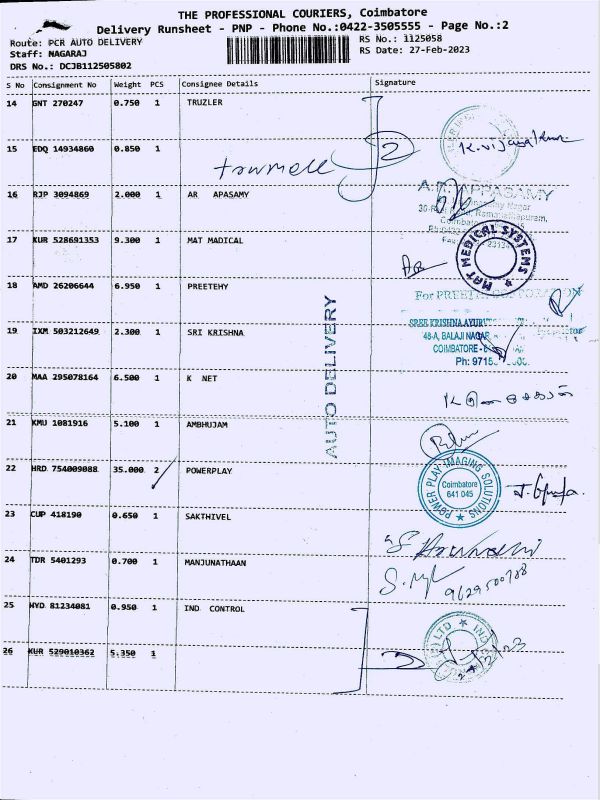 THE PROFESSIONAL COURIERS, Coimbatore
Delivery Runsheet - PNP - Phone No.:0422-3505555 - Page No.:2
Route: PCR AUTO DELIVERY
Staff: NAGARAJ
DRS No.: DCJB112505802
RS No.: 1125058
RS Date: 27-Feb-2023
S No Consignment No Weight PCS Consignee Details Signature
14 GNT 270247 0.750 1 TRUZLER
K. Vijayakumar
15 EDQ 14934860 0.850 1
2
16 RJP 3094869 2.000 1 AR APASAMY
17 KUR 528691353 9.300 1 MAT MADICAL
MAT MEDICAL SYSTEMS
18 AMD 26206644 6.950 1 PREETEHY
For PREETHI CORPORATION
19 IXM 503212649 2.300 1 SRI KRISHNA
SREE KRISHNA
48-A, BALAJI NAGAR
COIMBATORE -
Ph: 9715
AUTO DELIVERY
20 MAA 295078164 6.500 1 K NET
21 KMU 1081916 5.100 1 AMBHUJAM
22 HRD 754009088 35.000 2 POWERPLAY
POWER PLAY IMAGING SOLUTIONS
Coimbatore
641 045
23 CUP 418190 0.650 1 SAKTHIVEL
24 TDR 5401293 0.700 1 MANJUNATHAAN
9629500788
25 HYD 81234081 0.950 1 IND CONTROL
26 KUR 529010362 5.350 1
2